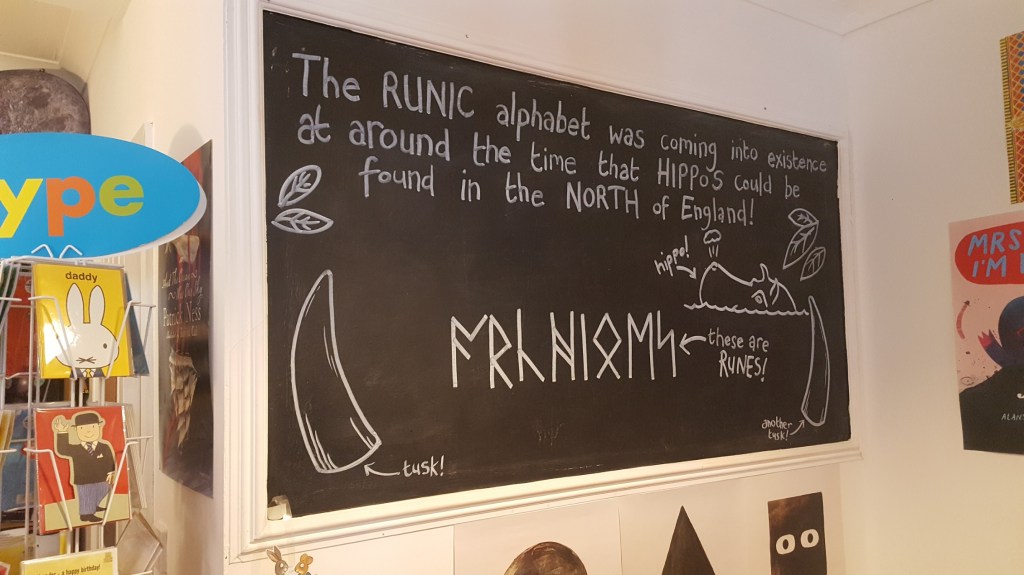 The RUNIC alphabet was coming into existence
at around the time that HIPPO'S could be
found in the NORTH of England!
hippo!
these are
RUNES!
tusk!
another
tusk!
ype
daddy
Patrick Ness
MRS
I'M
ALAN
a happy birthday!